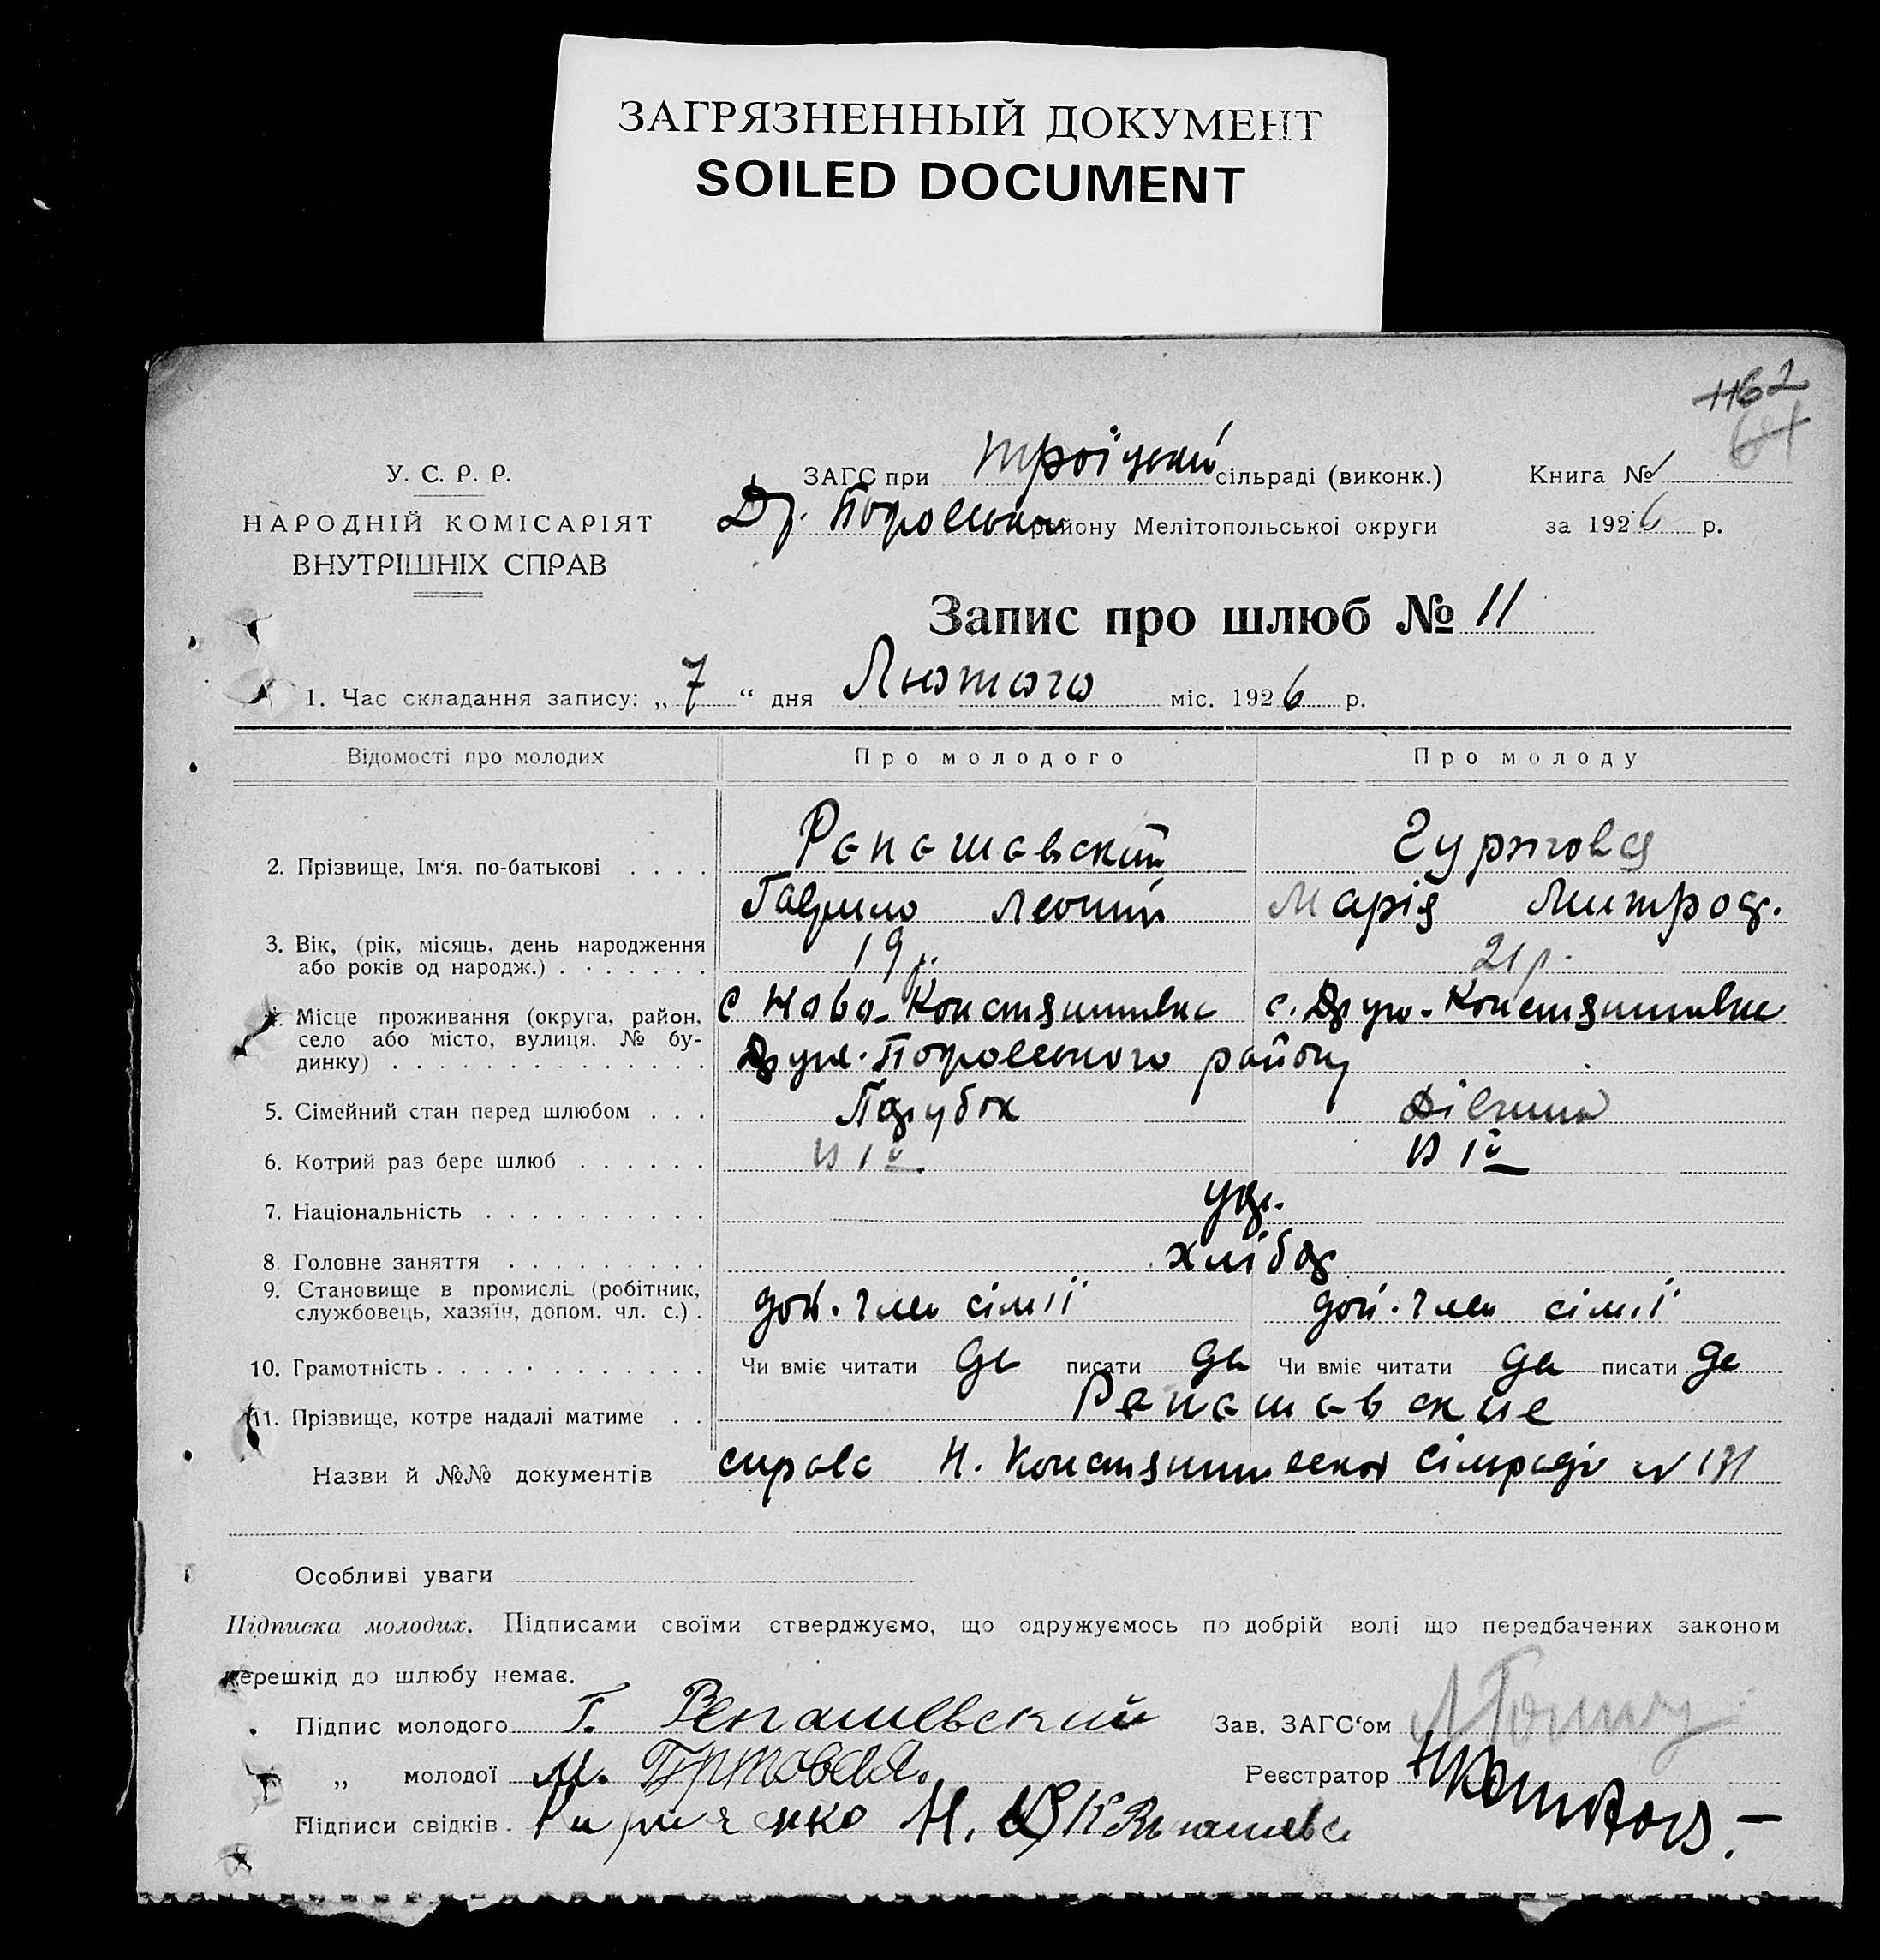 ЗАГРЯЗНЕННЫЙ ДОКУМЕНТ
SOILED DOCUMENT
1162
У. С. Р. Р.
НАРОДНІЙ КОМІСАРІЯТ
ВНУТРІШНІХ СПРАВ
ЗАГС при Троїцкій сільраді (виконк.)
Др. Покровськ району Мелітопольської округи
Книга № 1
за 1926 р.
Запис про шлюб № 11
1. Час складання запису: „ 7 “ дня Лютого міс. 1926 р.
Відомості про молодих Про молодого Про молоду
2. Прізвище, Ім‘я. по-батькові . . . . Рапашавский Гуртова
Гаврило Леонтій Марія Митроф.
3. Вік, (рік, місяць, день народження 19 р. 21 р.
або років од народж.) . . . . . . .
4. Місце проживання (округа, район, с Ново-Константинівка с. Друго-Константинівка
село або місто, вулиця. № бу-
динку) . . . . . . . . . . . . . . . Друг. Покровського району
5. Сімейний стан перед шлюбом . . . Парубок Дівчина
6. Котрий раз бере шлюб . . . . . . в 1й в 1й
7. Національність . . . . . . . . . . укр.
8. Головне заняття . . . . . . . . . хлібор
9. Становище в промислі (робітник, дой. член сімії дой. член сімії
службовець, хазяїн, допом. чл. с.) .
10. Грамотність . . . . . . . . . . . . Чи вміє читати да писати да Чи вміє читати да писати да
11. Прізвище, котре надалі матиме . . Рапашавские
Назви й №№ документів справка Н. Константиновской Сільради № 131
Особливі уваги
Підписка молодих. Підписами своїми стверджуємо, що одружуємось по добрій волі що передбачених законом
перешкід до шлюбу немає.
Підпис молодого Г. Репашевский Зав. ЗАГС‘ом
„ молодої М. Гуртовая. Реєстратор
Підписи свідків. Кириченко Н.